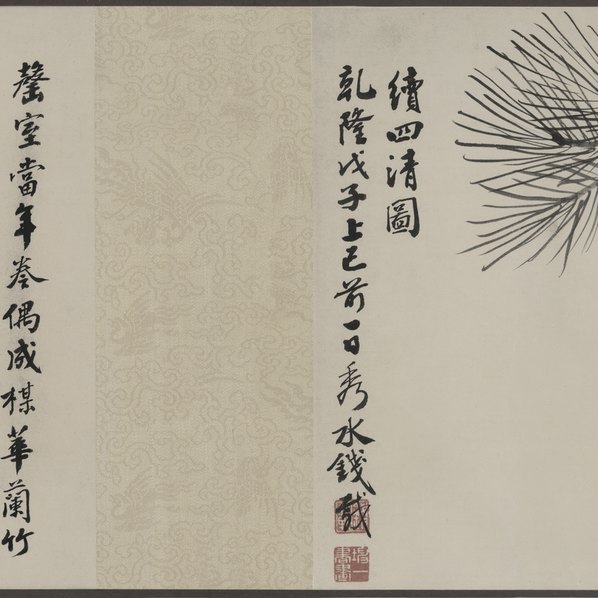 續四清圖
乾隆戊子上巳前一日秀水錢載
罄室當年卷偶成楳華蘭竹